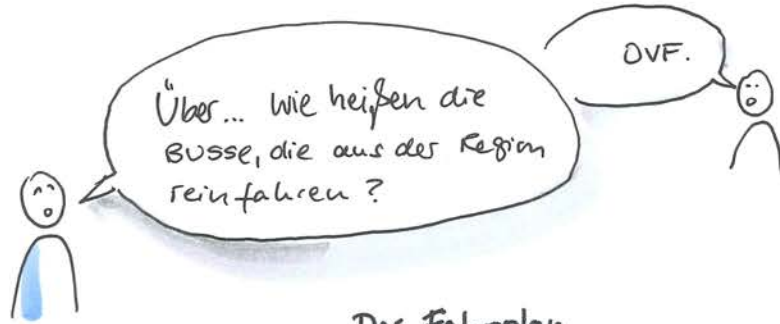 Über... wie heißen die
Busse, die aus der Region
reinfahren?
OVF.
Der Fahrplan